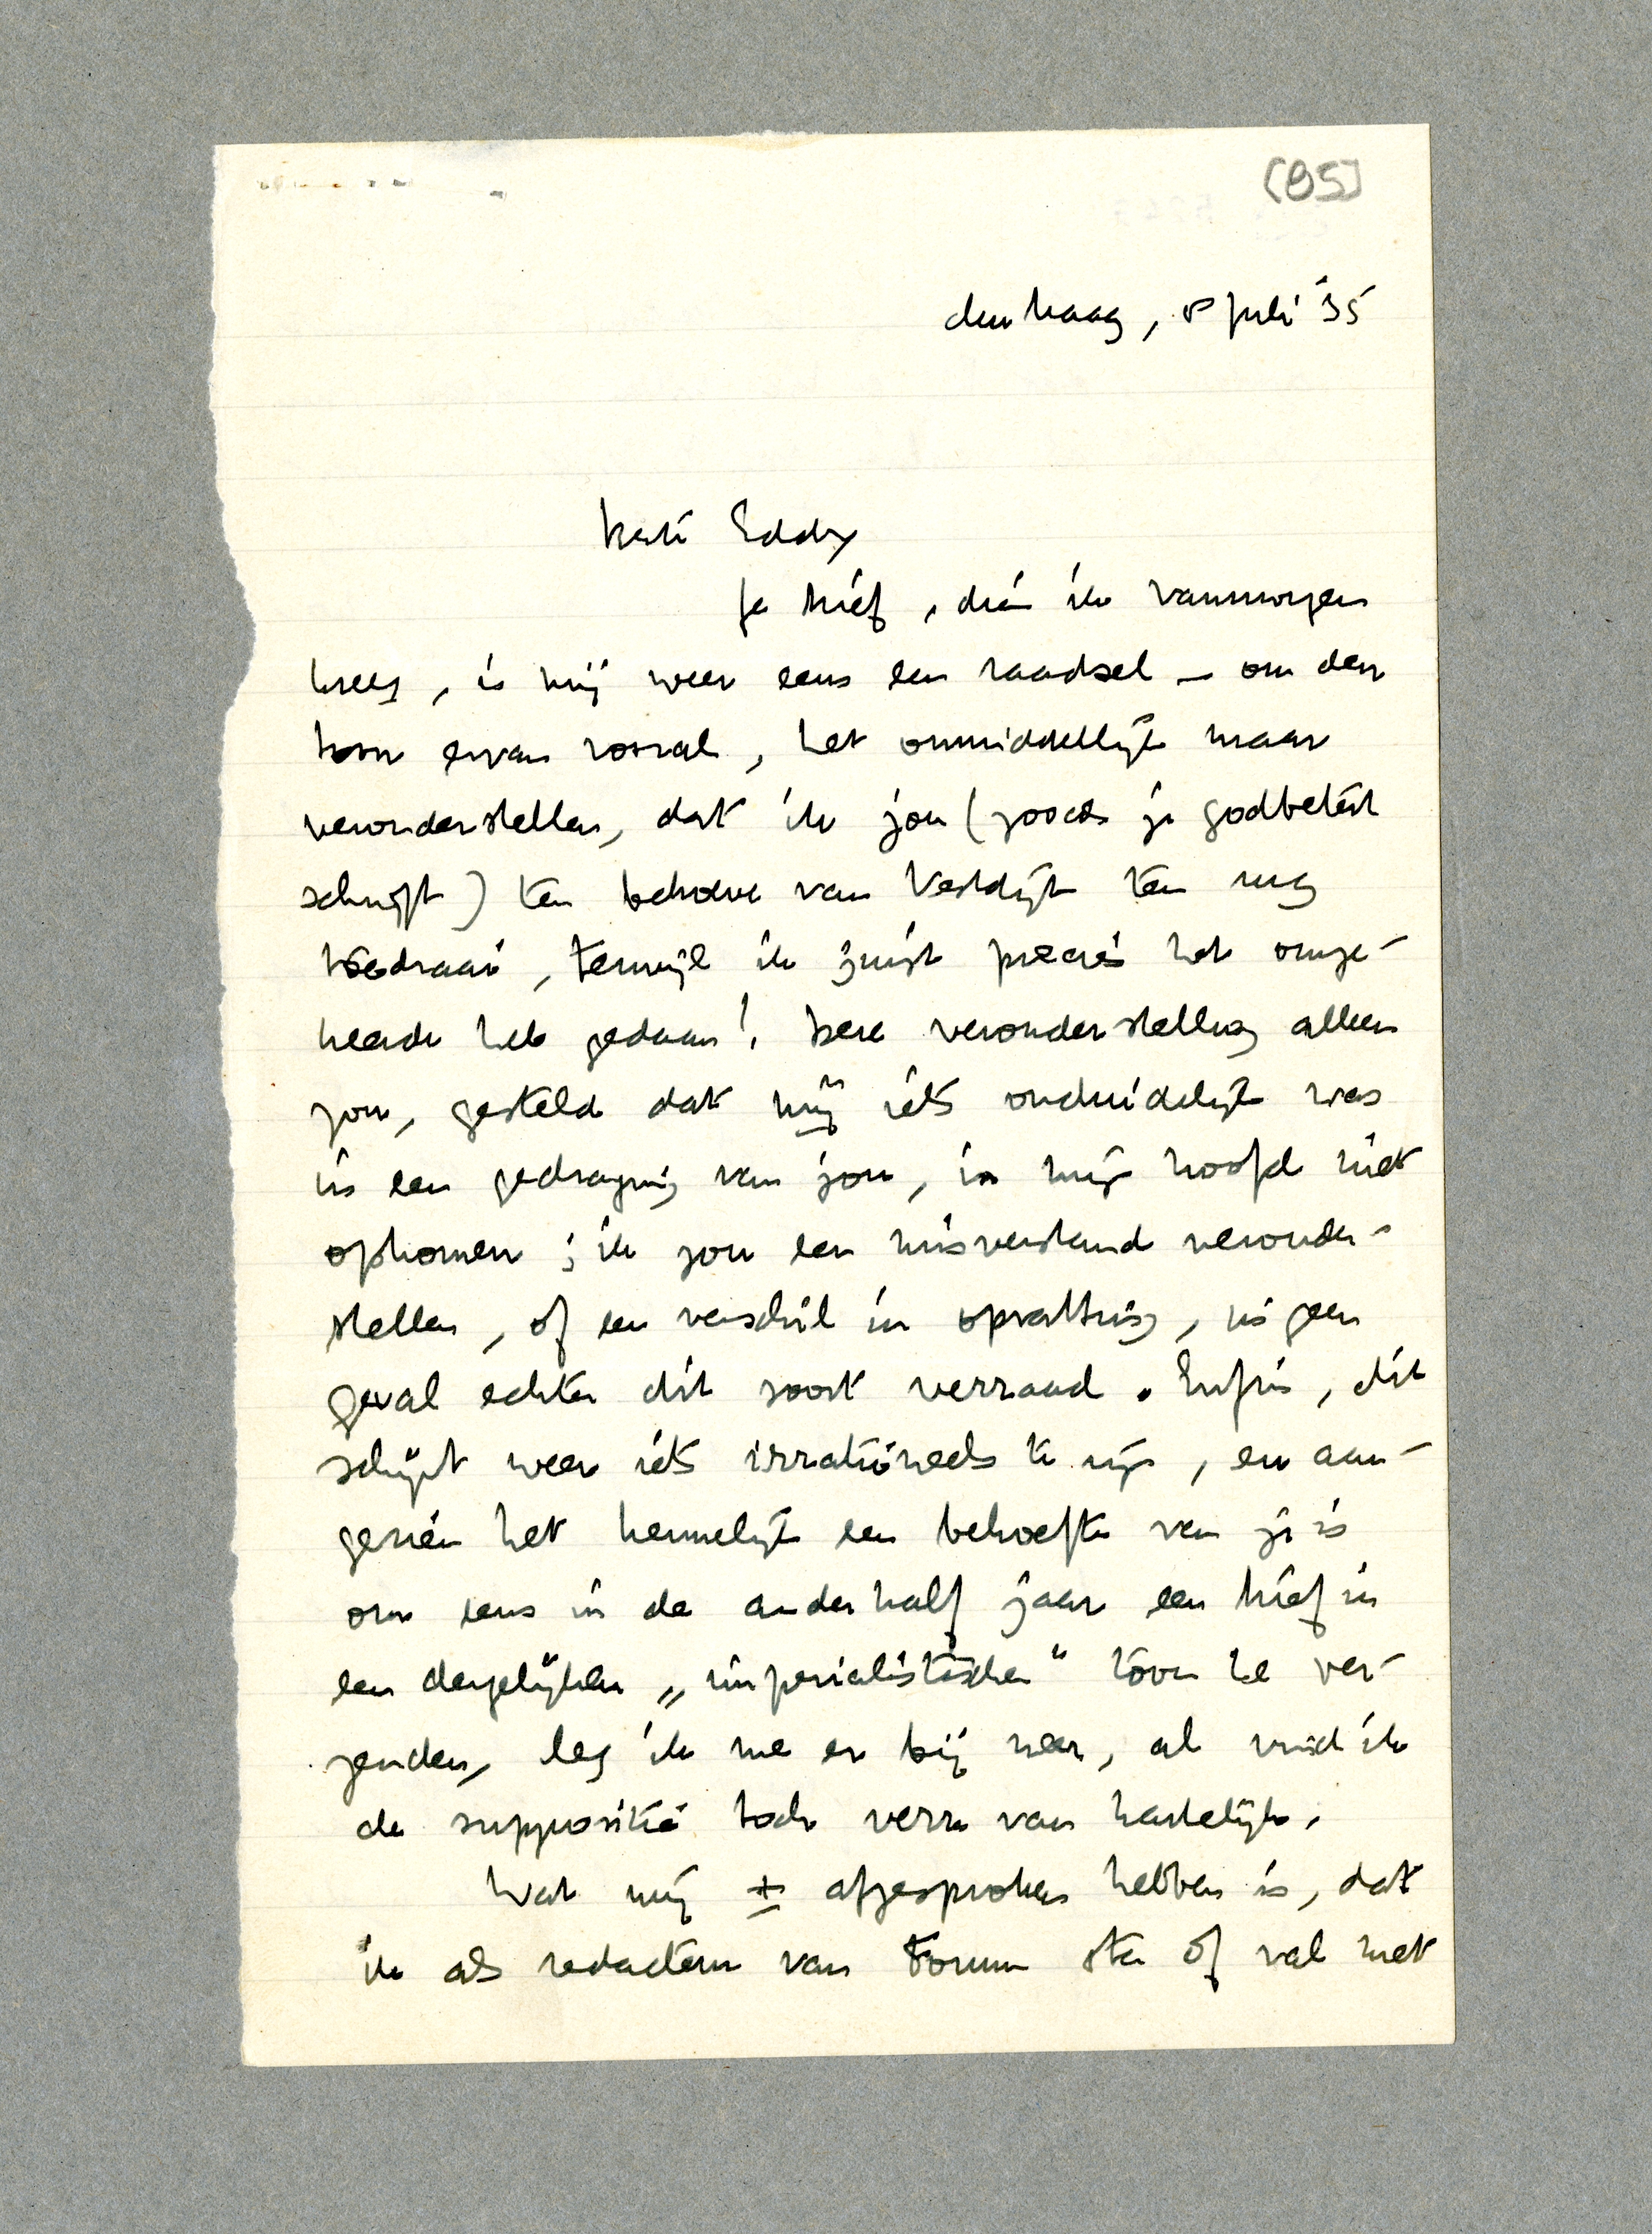 [95]
den haag, 5 juli '35
Beste Eddy
Je brief, dien ik vanmorgen
kreeg, is mij weer eens een raadsel – om den
toon ervan vooral, het onmiddellijk maar
veronderstellen, dat ik jou (zooals je godbetert
schrijft) ten behoeve van Vestdijk den rug
toedraai, terwijl ik juist precies het omge-
keerde heb gedaan! Deze veronderstelling alleen
zou, gesteld dat mij iets onduidelijk was
in een gedraging van jou, in mijn hoofd niet
opkomen; ik zou een misverstand veronder-
stellen, of een verschil in opvatting, in geen
geval echter dit soort verraad. Enfin, dit
schijnt weer iets irrationeels te zijn, en aan-
gezien het kennelijk een behoefte van je is
om eens in de anderhalf jaar een brief in
een dergelijken „imperialistischen" toon te ver-
zenden, leg ik me er bij neer, al vind ik
de suppositie toch verre van hartelijk.
Wat wij ± afgesproken hebben is, dat
ik als redacteur van Forum sta of val met